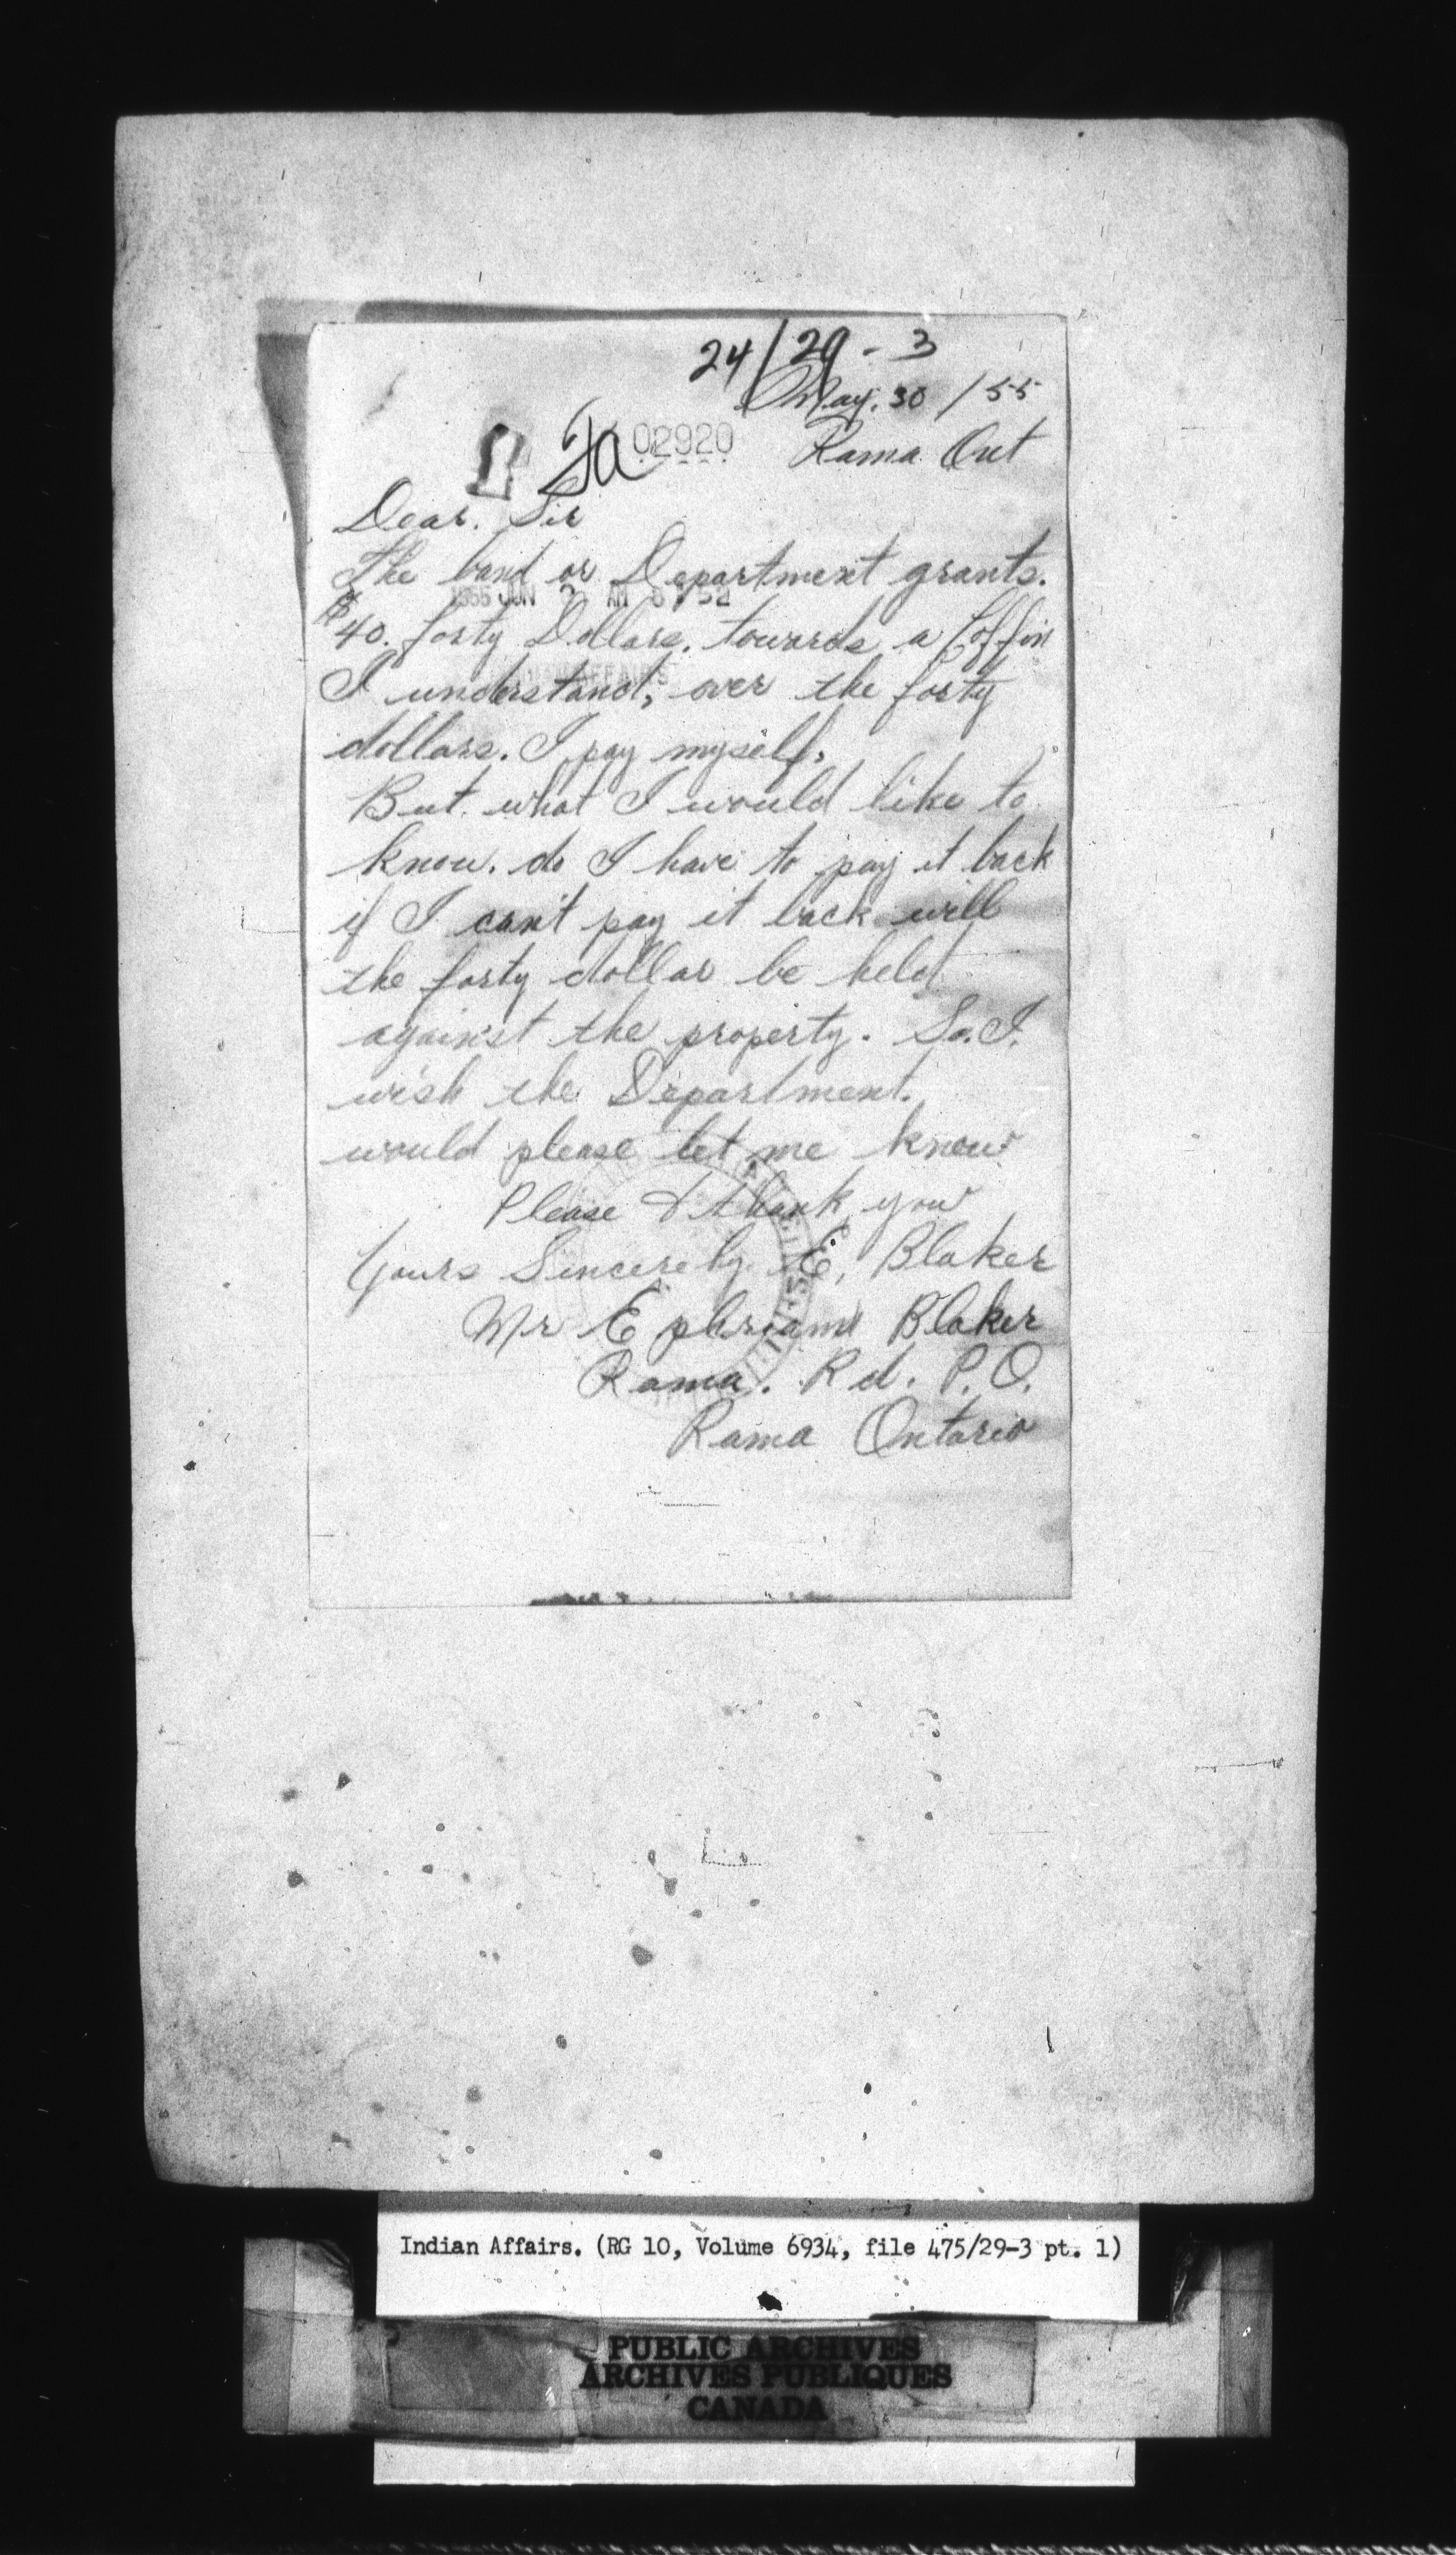 24/29-3
May. 30 / 55
02920 Rama Ont
Dear. Sir
The band or Department grants.
1955 JUN AM 8 52
$40. forty Dollars. towards a Coffin
INDIAN AFFAIRS
I understand, over the forty
dollars. I pay myself.
But what I would like to
know. do I have to pay it back
if I can't pay it back will
the forty dollar be held
against the property. So. I.
wish the Department.
would please let me know
Please & thank you
Yours Sincerely E. Blaker
Mr Ephriam Blaker
Rama. Rd. P.O.
Rama Ontario
Indian Affairs. (RG 10, Volume 6934, file 475/29-3 pt. 1)
PUBLIC ARCHIVES
ARCHIVES PUBLIQUES
CANADA